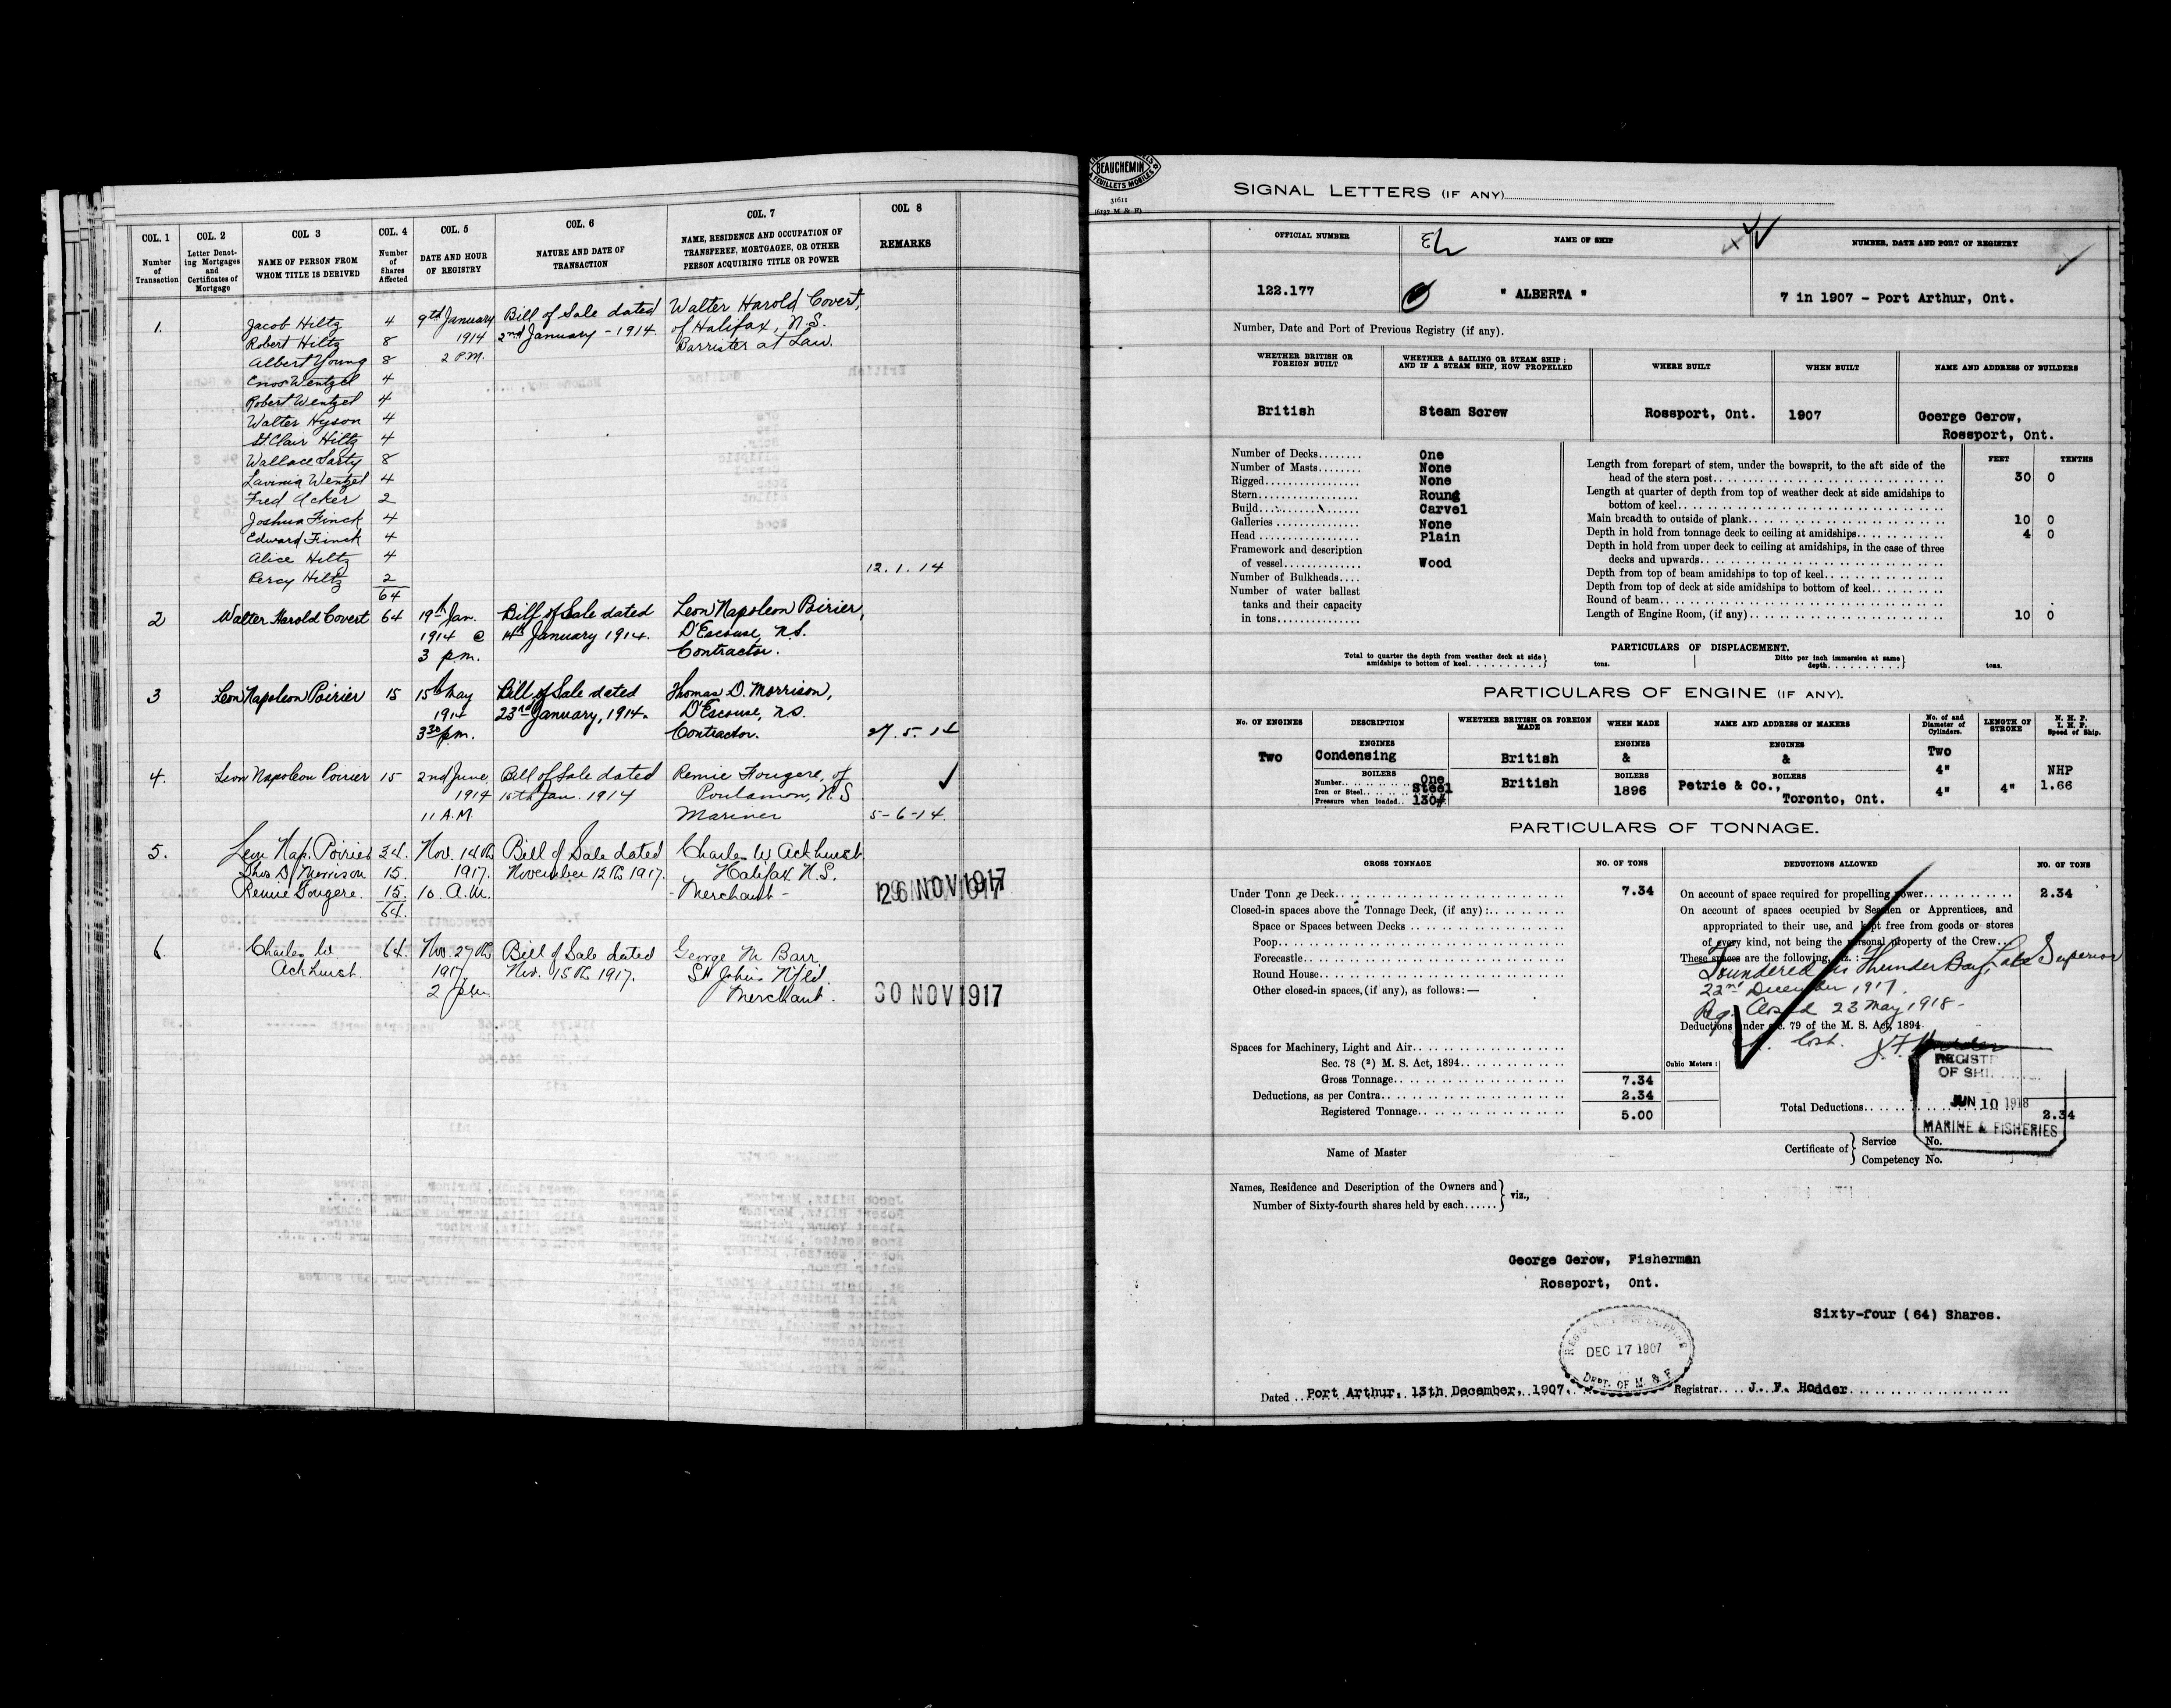 COL. 1
Number
of
Transaction
COL. 2
Letter Denot-
ing Mortgages
and
Certificates of
Mortgage
COL 3
NAME OF PERSON FROM
WHOM TITLE IS DERIVED
COL. 4
Number
of
Shares
Affected
COL. 5
DATE AND HOUR
OF REGISTRY
COL. 6
NATURE AND DATE OF
TRANSACTION
COL. 7
NAME, RESIDENCE AND OCCUPATION OF
TRANSFEREE, MORTGAGES, OR OTHER
PERSON ACQUIRING TITLE OR POWER
COL 8
REMARKS
1. Jacob Hiltz 4 9th January Bill of Sale dated Walter Harold Covert,
Robert Hiltz 8 1914 2nd January - 1914. of Halifax, N.S.
Albert Young 8 2 P.M. Barrister at Law.
Enos Wentzel 4
Robert Wentzel 4
Walter Hyson 4
St. Clair Hiltz 4
Wallace Sarty 8
Lavinia Wentzel 4
Fred Acker 2
Joshua Finck 4
Edward Finck 4
Alice Hiltz 4 12.1.14
Percy Hiltz 2
64
2 Walter Harold Covert 64 19th Jan. Bill of Sale dated Leon Napoleon Poirier,
1914 @ 14th January 1914. D'Escouse, N.S.
3 p.m. Contractor.
3 Leon Napoleon Poirier 15 15th May Bill of Sale dated Thomas D. Morrison,
1914 23rd January, 1914. D'Escouse, N.S.
3 30 p.m. Contractor. 27.5.14
4. Leon Napoleon Poirier 15 2nd June, Bill of Sale dated Remie Fougere, of
1914 15th Jan. 1914 Poulamon, N.S
11 A.M. Mariner 5-6-14.
5. Leon Nap. Poirier 34. Nov. 14th Bill of Sale dated Charles W Ackhurst
Thos D. Morrison 15. 1917. November 12th 1917. Halifax N.S.
Remie Fougere. 15. 10. A.M. - Merchant - 26 NOV 1917
64.
6. Charles W 64. Nov. 27th Bill of Sale dated George M Barr
Ackhurst. 1917 Nov. 15th 1917. St Johns Nfld.
2 pm Merchant. 30 NOV 1917
BEAUCHEMIN
FEUILLETS MOBILES
31611
(6137 M & F)
SIGNAL LETTERS (IF ANY)
OFFICIAL NUMBER
NAME OF SHIP
NUMBER, DATE AND PORT OF REGISTRY
122.177 " ALBERTA " 7 in 1907 - Port Arthur, Ont.
Number, Date and Port of Previous Registry (if any).
WHETHER BRITISH OR
FOREIGN BUILT
WHETHER A SAILING OR STEAM SHIP:
AND IF A STEAM SHIP, HOW PROPELLED
WHERE BUILT
WHEN BUILT
NAME AND ADDRESS OF BUILDERS
British Steam Screw Rossport, Ont. 1907 Goerge Gerow,
Rossport, Ont.
Number of Decks........ One
Number of Masts........ None
Rigged................. None
Stern.................. Roung
Build.................. Carvel
Galleries.............. None
Head................... Plain
Framework and description
of vessel.............. Wood
Number of Bulkheads....
Number of water ballast
tanks and their capacity
in tons...............
FEET TENTHS
Length from forepart of stem, under the bowsprit, to the aft side of the
head of the stern post.... 30 0
Length at quarter of depth from top of weather deck at side amidships to
bottom of keel....
Main breadth to outside of plank.... 10 0
Depth in hold from tonnage deck to ceiling at amidships.... 4 0
Depth in hold from upper deck to ceiling at amidships, in the case of three
decks and upwards....
Depth from top of beam amidships to top of keel....
Depth from top of deck at side amidships to bottom of keel....
Round of beam....
Length of Engine Room, (if any).... 10 0
PARTICULARS OF DISPLACEMENT.
Total to quarter the depth from weather deck at side
amidships to bottom of keel.......... tons.
Ditto per inch immersion at same
depth.......... tons.
PARTICULARS OF ENGINE (IF ANY).
No. OF ENGINES
DESCRIPTION
WHETHER BRITISH OR FOREIGN
MADE
WHEN MADE
NAME AND ADDRESS OF MAKERS
No. of and
Diameter of
Cylinders.
LENGTH OF
STROKE
N. H. P.
I. H. P.
Speed of Ship.
ENGINES ENGINES ENGINES
Two Condensing British & & Two
BOILERS BOILERS BOILERS 4" NHP
Number.... One British 1896 Petrie & Co., 4" 4" 1.66
Iron or Steel.... Steel
Pressure when loaded.. 130# Toronto, Ont.
PARTICULARS OF TONNAGE.
GROSS TONNAGE NO. OF TONS DEDUCTIONS ALLOWED NO. OF TONS
Under Tonnage Deck.... 7.34
Closed-in spaces above the Tonnage Deck, (if any):....
Space or Spaces between Decks....
Poop....
Forecastle....
Round House....
Other closed-in spaces, (if any), as follows:—
Spaces for Machinery, Light and Air....
Sec. 78 (2) M. S. Act, 1894....
Gross Tonnage.... 7.34
Deductions, as per Contra.... 2.34
Registered Tonnage.... 5.00
On account of space required for propelling power.... 2.34
On account of spaces occupied by Seamen or Apprentices, and
appropriated to their use, and kept free from goods or stores
of every kind, not being the personal property of the Crew..
These spaces are the following, viz.:
Foundered in Thunder Bay, Lake Superior
22nd December 1917.
Reg. Closed 23 May 1918 -
Deductions under sec. 79 of the M. S. Act, 1894
lost. J F Hodder
Cubic Meters:
REGISTR
OF SHI
JUN 10 1918
MARINE & FISHERIES
Total Deductions.... 2.34
Name of Master
Certificate of Service No.
Competency No.
Names, Residence and Description of the Owners and
Number of Sixty-fourth shares held by each...... viz.,
George Gerow, Fisherman
Rossport, Ont.
Sixty-four (64) Shares.
DEC 17 1907
DEPT. OF M. & F.
Dated Port Arthur, 13th December, 1907. Registrar.... J. F. Hodder